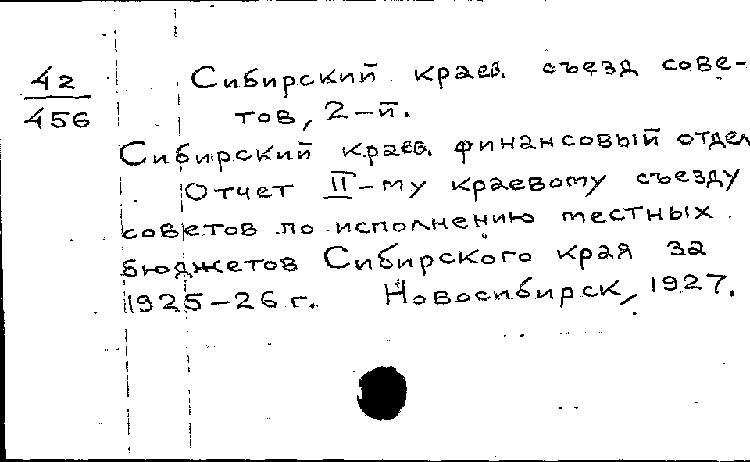 42
456
Сибирский краев. съезд сове-
тов, 2-й.
Сибирский краев. финансовый отдел
Отчет II-му краевому съезду
советов по исполнению местных
бюджетов Сибирского края за
1925-26 г. Новосибирск, 1927.